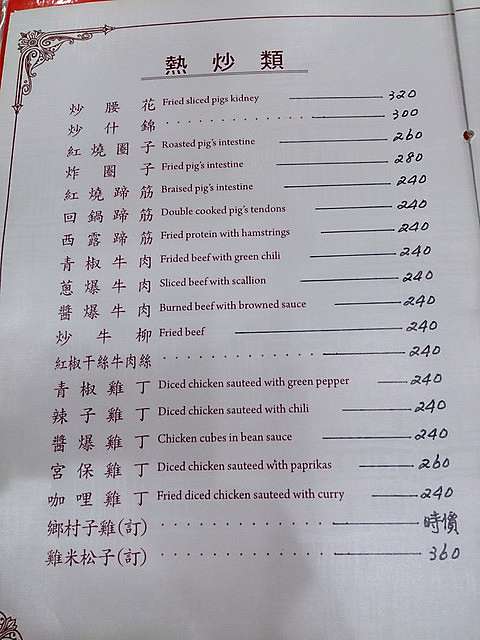 熱炒類
炒腰花 Fried sliced pigs kidney 320
炒什錦 300
紅燒圈子 Roasted pig's intestine 260
炸圈子 Fried pig's intestine 280
紅燒蹄筋 Braised pig's intestine 240
回鍋蹄筋 Double cooked pig's tendons 240
西露蹄筋 Fried protein with hamstrings 240
青椒牛肉 Frided beef with green chili 240
蔥爆牛肉 Sliced beef with scallion 240
醬爆牛肉 Burned beef with browned sauce 240
炒牛柳 Fried beef 240
紅椒干絲牛肉絲 240
青椒雞丁 Diced chicken sauteed with green pepper 240
辣子雞丁 Diced chicken sauteed with chili 240
醬爆雞丁 Chicken cubes in bean sauce 240
宮保雞丁 Diced chicken sauteed with paprikas 260
咖哩雞丁 Fried diced chicken sauteed with curry 240
鄉村子雞(訂) 時價
雞米松子(訂) 360